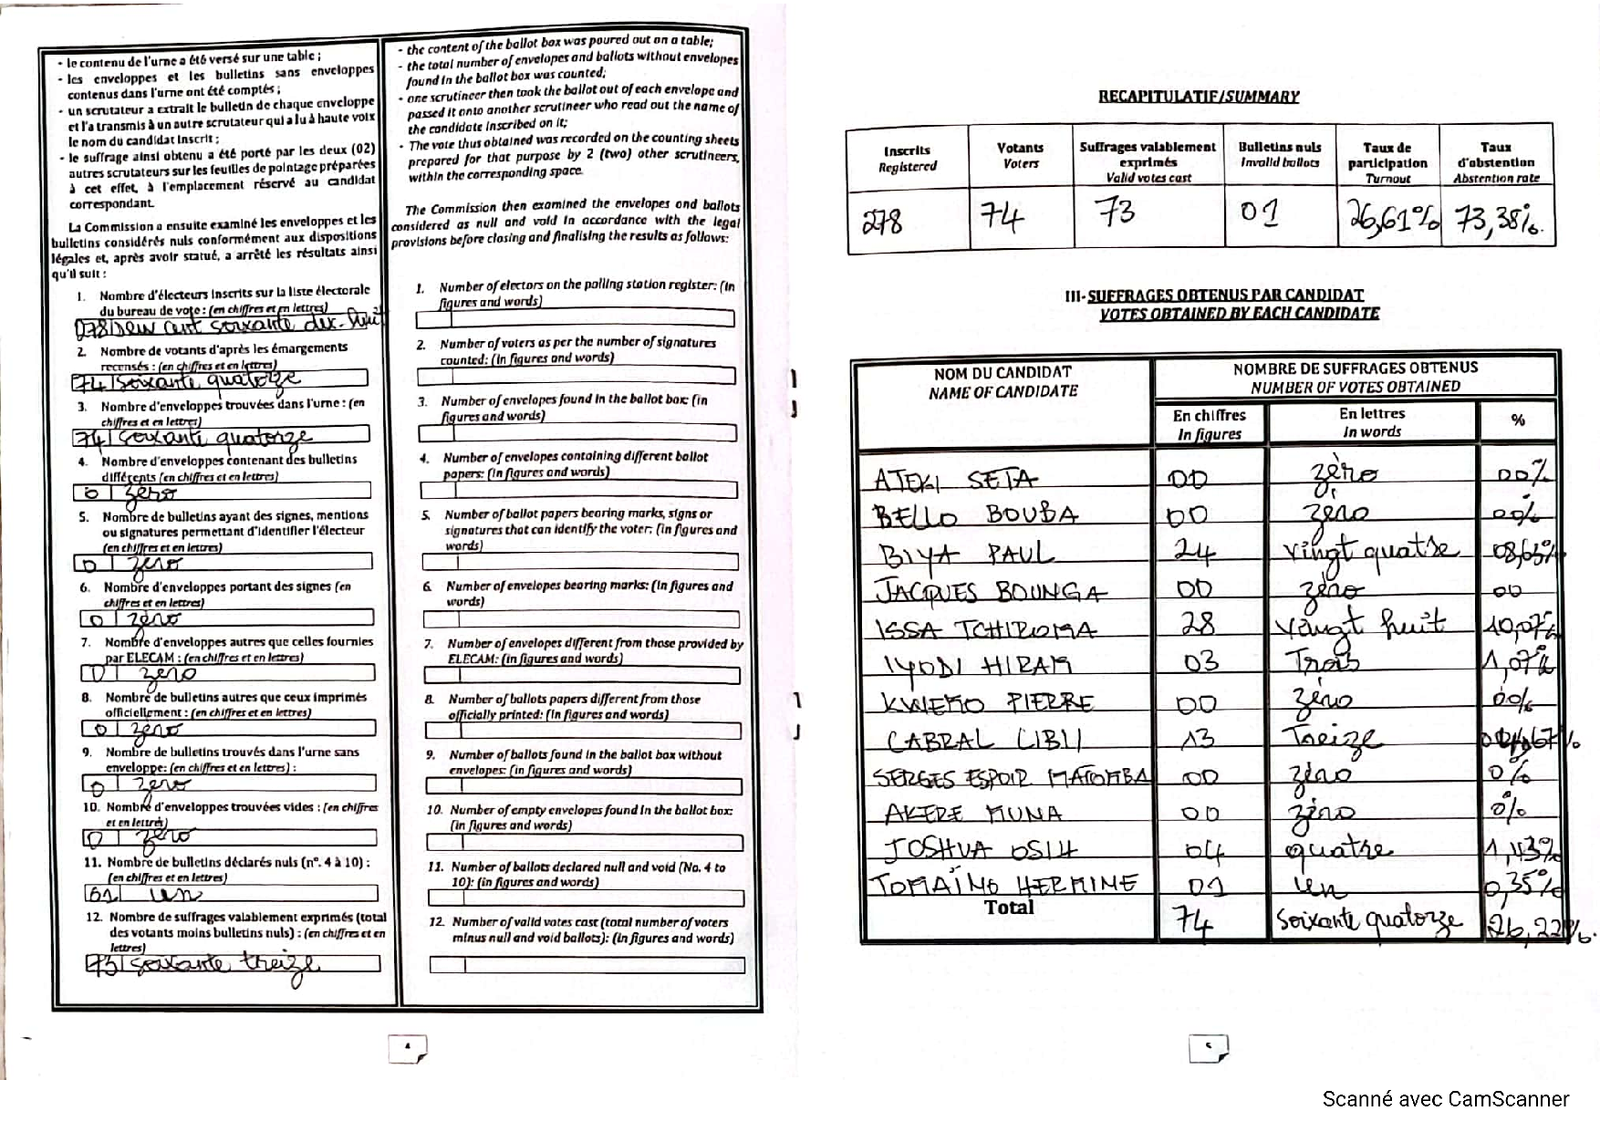 - le contenu de l'urne a été versé sur une table ;
- les enveloppes et les bulletins sans enveloppes
contenus dans l'urne ont été comptés ;
- un scrutateur a extrait le bulletin de chaque enveloppe
et l'a transmis à un autre scrutateur qui a lu à haute voix
le nom du candidat inscrit ;
- le suffrage ainsi obtenu a été porté par les deux (02)
autres scrutateurs sur les feuilles de pointage préparées
à cet effet, à l'emplacement réservé au candidat
correspondant.
La Commission a ensuite examiné les enveloppes et les
bulletins considérés nuls conformément aux dispositions
légales et, après avoir statué, a arrêté les résultats ainsi
qu'il suit :
1. Nombre d'électeurs inscrits sur la liste électorale
du bureau de vote : (en chiffres et en lettres)
278 Deux cent soixante dix-huit
2. Nombre de votants d'après les émargements
recensés : (en chiffres et en lettres)
74 soixante quatorze
3. Nombre d'enveloppes trouvées dans l'urne : (en
chiffres et en lettres)
74 soixante quatorze
4. Nombre d'enveloppes contenant des bulletins
différents (en chiffres et en lettres)
0 zéro
5. Nombre de bulletins ayant des signes, mentions
ou signatures permettant d'identifier l'électeur
(en chiffres et en lettres)
0 zéro
6. Nombre d'enveloppes portant des signes (en
chiffres et en lettres)
0 zéro
7. Nombre d'enveloppes autres que celles fournies
par ELECAM : (en chiffres et en lettres)
0 zéro
8. Nombre de bulletins autres que ceux imprimés
officiellement : (en chiffres et en lettres)
0 zéro
9. Nombre de bulletins trouvés dans l'urne sans
enveloppe: (en chiffres et en lettres) :
0 zéro
10. Nombre d'enveloppes trouvées vides : (en chiffres
et en lettres)
0 zéro
11. Nombre de bulletins déclarés nuls (n°. 4 à 10) :
(en chiffres et en lettres)
01 un
12. Nombre de suffrages valablement exprimés (total
des votants moins bulletins nuls) : (en chiffres et en
lettres)
73 soixante treize
- the content of the ballot box was poured out on a table;
- the total number of envelopes and ballots without envelopes
found in the ballot box was counted;
- one scrutineer then took the ballot out of each envelope and
passed it onto another scrutineer who read out the name of
the candidate inscribed on it;
- The vote thus obtained was recorded on the counting sheets
prepared for that purpose by 2 (two) other scrutineers,
within the corresponding space.
The Commission then examined the envelopes and ballots
considered as null and void in accordance with the legal
provisions before closing and finalising the results as follows:
1. Number of electors on the polling station register: (in
figures and words)
2. Number of voters as per the number of signatures
counted: (in figures and words)
3. Number of envelopes found in the ballot box: (in
figures and words)
4. Number of envelopes containing different ballot
papers: (in figures and words)
5. Number of ballot papers bearing marks, signs or
signatures that can identify the voter: (in figures and
words)
6. Number of envelopes bearing marks: (in figures and
words)
7. Number of envelopes different from those provided by
ELECAM: (in figures and words)
8. Number of ballots papers different from those
officially printed: (in figures and words)
9. Number of ballots found in the ballot box without
envelopes: (in figures and words)
10. Number of empty envelopes found in the ballot box:
(in figures and words)
11. Number of ballots declared null and void (No. 4 to
10): (in figures and words)
12. Number of valid votes cast (total number of voters
minus null and void ballots): (in figures and words)
4
RECAPITULATIF/SUMMARY
Inscrits Registered | Votants Voters | Suffrages valablement exprimés Valid votes cast | Bulletins nuls Invalid ballots | Taux de participation Turnout | Taux d'abstention Abstention rate
278 | 74 | 73 | 01 | 26,61% | 73,38%.
III- SUFFRAGES OBTENUS PAR CANDIDAT
VOTES OBTAINED BY EACH CANDIDATE
NOM DU CANDIDAT NAME OF CANDIDATE | NOMBRE DE SUFFRAGES OBTENUS NUMBER OF VOTES OBTAINED
En chiffres In figures | En lettres In words | %
ATEKI SETA | 00 | zéro | 00%
BELLO BOUBA | 00 | zéro | 00%
BIYA PAUL | 24 | vingt quatre | 08,63%
JACQUES BOUNGA | 00 | zéro | 00
ISSA TCHIROMA | 28 | vingt huit | 10,07%
IYODI HIRAM | 03 | Trois | 1,07%
KWEMO PIERRE | 00 | zéro | 00%
CABRAL LIBII | 13 | Treize
SERGES ESPOIR MATOMBA | 00 | zéro | 0%
AKERE MUNA | 00 | zéro | 0%
JOSHUA OSIH | 04 | quatre | 1,43%
TOMAÏNO HERMINE | 01 | un | 0,35%
Total | 74 | soixante quatorze | 26,22%.
5
Scanné avec CamScanner